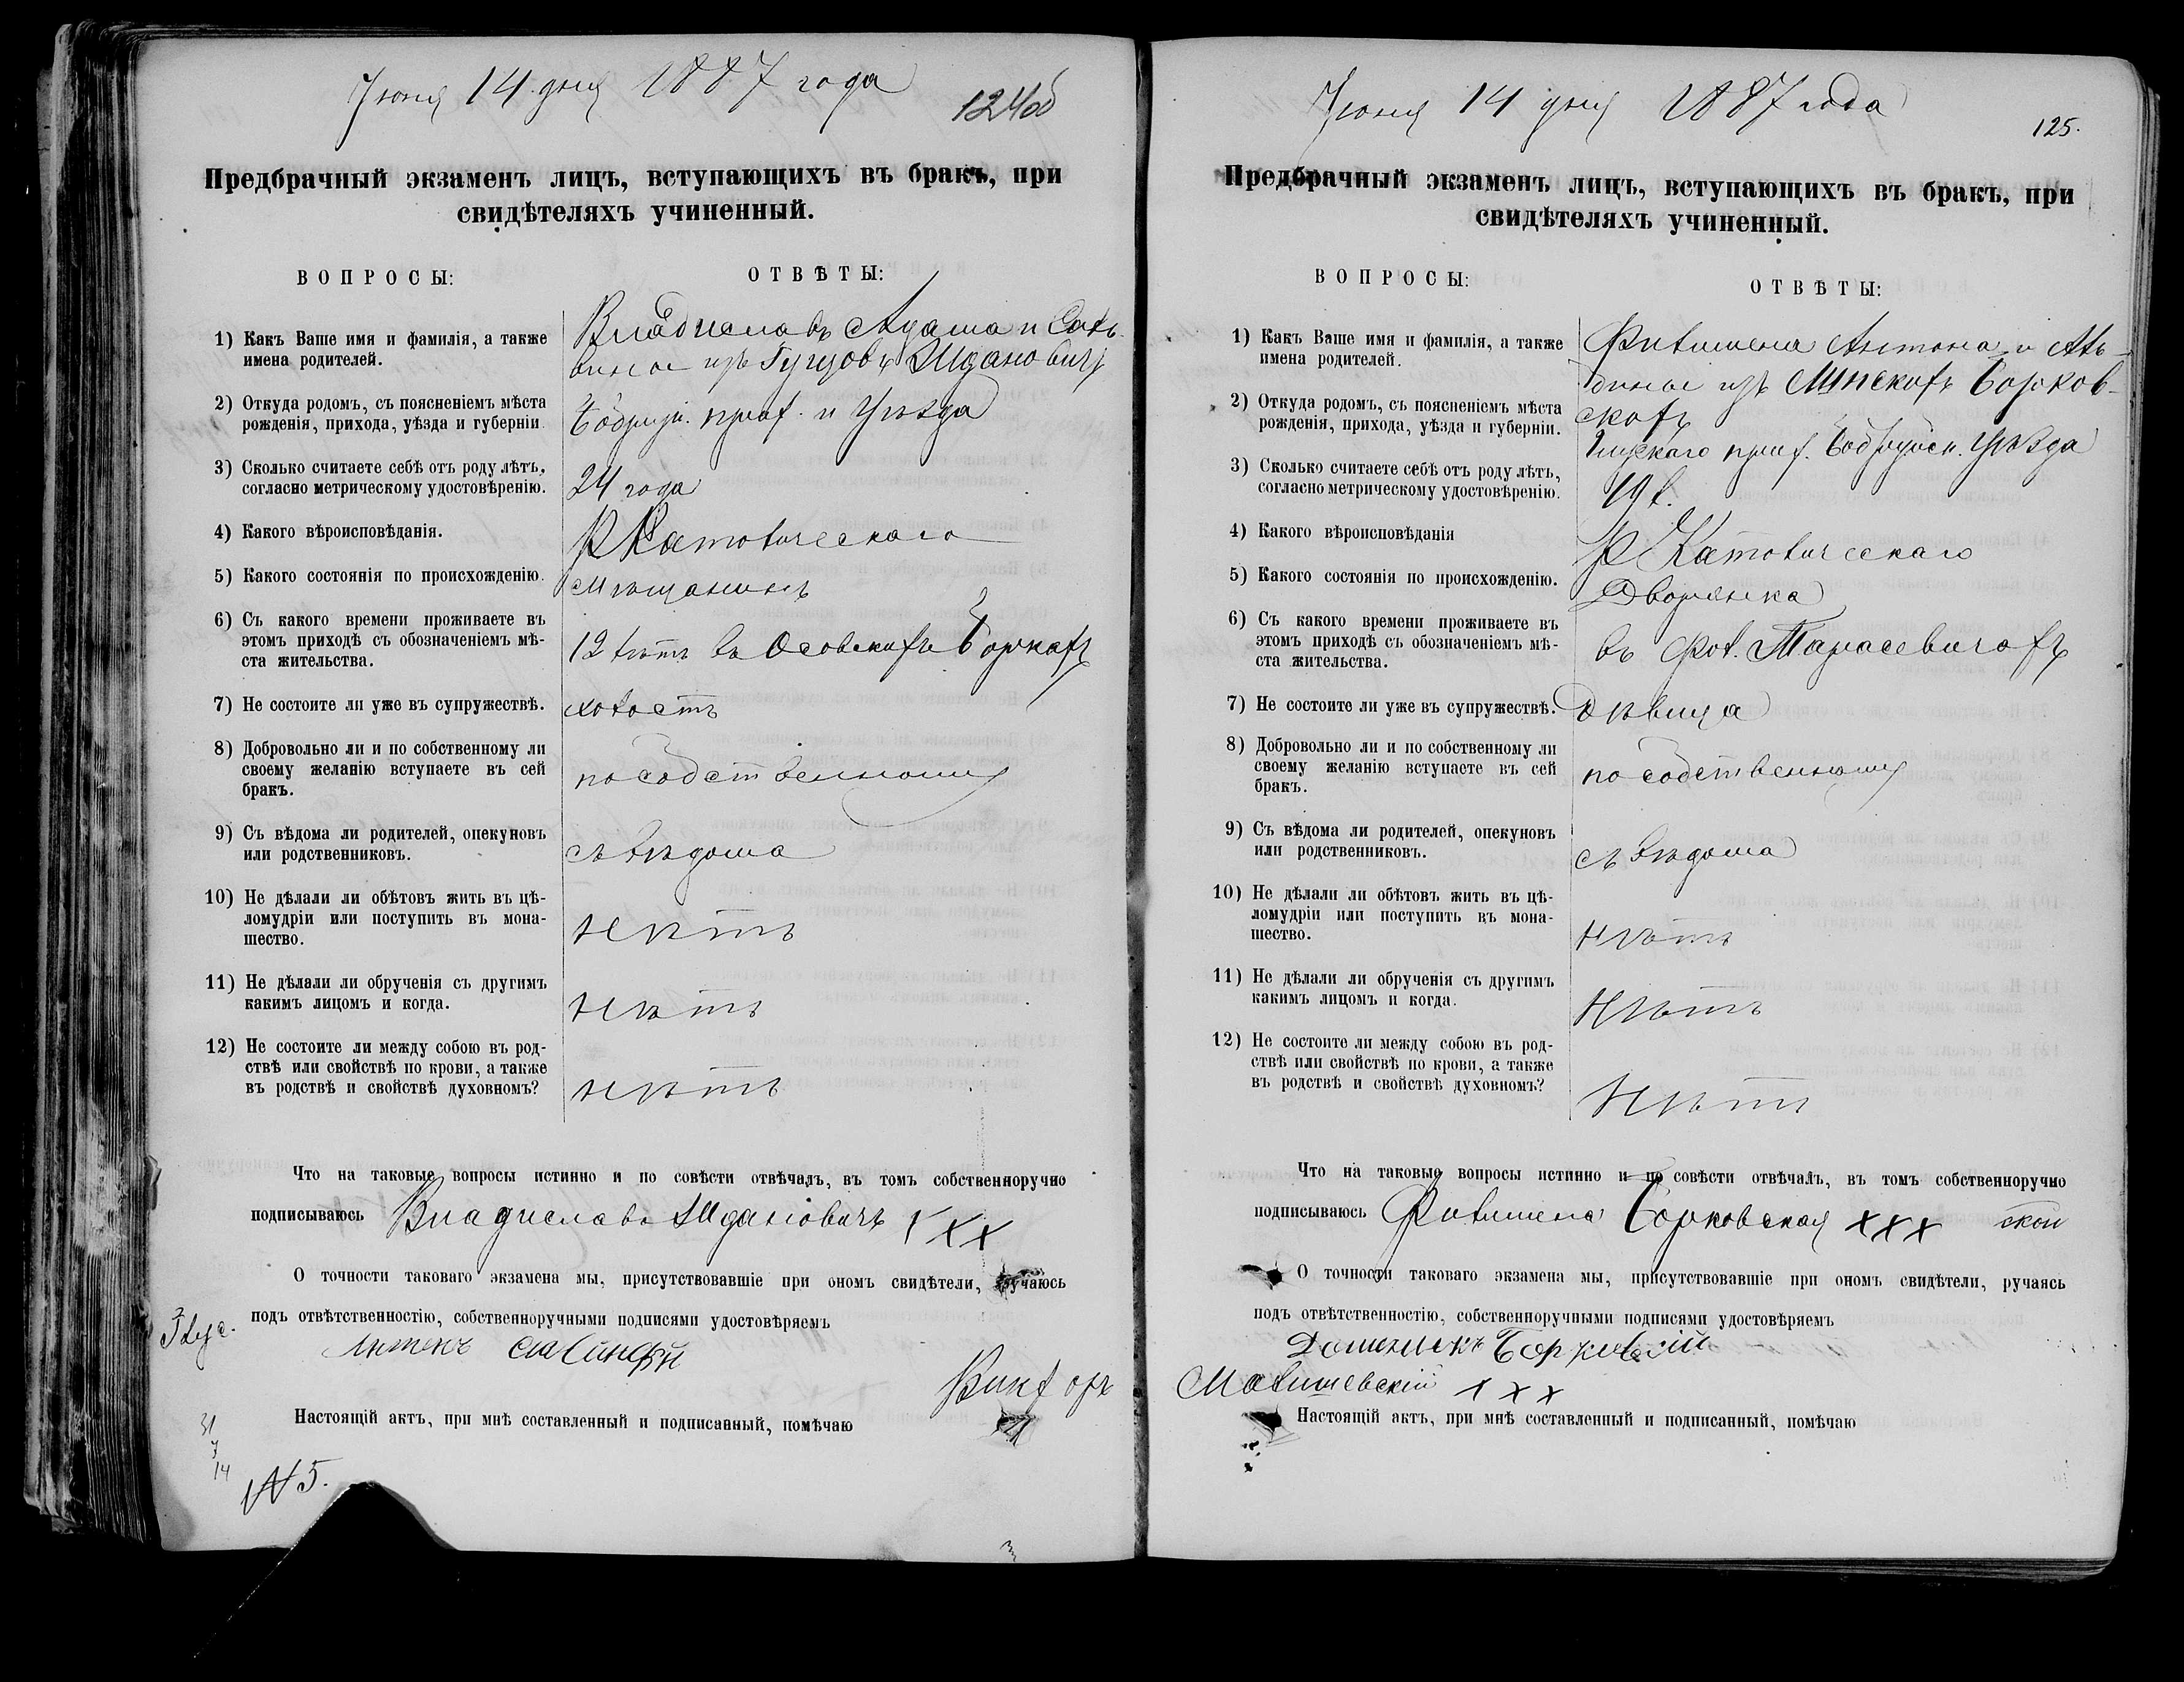 Іюня 14 дня 1887 года
124об
Предбрачный экзаменъ лицъ, вступающихъ въ бракъ, при
свидѣтеляхъ учиненный.
ВОПРОСЫ:
ОТВѢТЫ:
1) Какъ Ваше имя и фамилія, а также
имена родителей.
Владиславъ Адама и
изъ Ждановичъ
2) Откуда родомъ, съ поясненіемъ мѣста
рожденія, прихода, уѣзда и губерніи.
Бобруй. прих. и Уѣзда
3) Сколько считаете себѣ отъ роду лѣтъ,
согласно метрическому удостовѣренію.
24 года
4) Какого вѣроисповѣданія.
Р Католическаго
5) Какого состоянія по происхожденію.
Мѣщанинъ
6) Съ какого времени проживаете въ
этомъ приходѣ съ обозначеніемъ мѣ-
ста жительства.
12 лѣтъ въ Осовскихъ Боркахъ
7) Не состоите ли уже въ супружествѣ.
холостъ
8) Добровольно ли и по собственному ли
своему желанію вступаете въ сей
бракъ.
по собственному
9) Съ вѣдома ли родителей, опекуновъ
или родственниковъ.
съ вѣдома
10) Не дѣлали ли обѣтовъ жить въ цѣ-
ломудріи или поступить въ мона-
шество.
нѣтъ
11) Не дѣлали ли обрученія съ другимъ
какимъ лицомъ и когда.
нѣтъ
12) Не состоите ли между собою въ род-
ствѣ или свойствѣ по крови, а также
въ родствѣ и свойствѣ духовномъ?
нѣтъ
Что на таковые вопросы истинно и по совѣсти отвѣчалъ, въ томъ собственноручно
подписываюсь Владиславъ Ждановичъ ХХХ
О точности таковаго экзамена мы, присутствовавшіе при ономъ свидѣтели, ручаюсь
подъ отвѣтственностію, собственноручными подписями удостовѣряемъ
Антонъ
Викторъ
Настоящій актъ, при мнѣ составленный и подписанный, помѣчаю
31
7
14
№ 5.
Іюня 14 дня 1887 года
125.
Предбрачный экзаменъ лицъ, вступающихъ въ бракъ, при
свидѣтеляхъ учиненный.
ВОПРОСЫ:
ОТВѢТЫ:
1) Какъ Ваше имя и фамилія, а также
имена родителей.
Филимена Антона и Аль-
бины изъ Минскихъ Борков-
скихъ
2) Откуда родомъ, съ поясненіемъ мѣста
рожденія, прихода, уѣзда и губерніи.
Глускаго прих. Бобруйск. Уѣзда
3) Сколько считаете себѣ отъ роду лѣтъ,
согласно метрическому удостовѣренію.
19 л.
4) Какого вѣроисповѣданія
Р Католическаго
5) Какого состоянія по происхожденію.
Дворянка
6) Съ какого времени проживаете въ
этомъ приходѣ съ обозначеніемъ мѣ-
ста жительства.
въ Фол. Тарасевичахъ
7) Не состоите ли уже въ супружествѣ.
Дѣвица
8) Добровольно ли и по собственному ли
своему желанію вступаете въ сей
бракъ.
по собственному
9) Съ вѣдома ли родителей, опекуновъ
или родственниковъ.
съ вѣдома
10) Не дѣлали ли обѣтовъ жить въ цѣ-
ломудріи или поступить въ мона-
шество.
нѣтъ
11) Не дѣлали ли обрученія съ другимъ
какимъ лицомъ и когда.
нѣтъ
12) Не состоите ли между собою въ род-
ствѣ или свойствѣ по крови, а также
въ родствѣ и свойствѣ духовномъ?
нѣтъ
Что на таковые вопросы истинно и по совѣсти отвѣчалъ, въ томъ собственноручно
подписываюсь Филимена Борковская ХХХ
О точности таковаго экзамена мы, присутствовавшіе при ономъ свидѣтели, ручаясь
подъ отвѣтственностію, собственноручными подписями удостовѣряемъ
Доминикъ Борковскій
Малишевскій ХХХ
Настоящій актъ, при мнѣ составленный и подписанный, помѣчаю